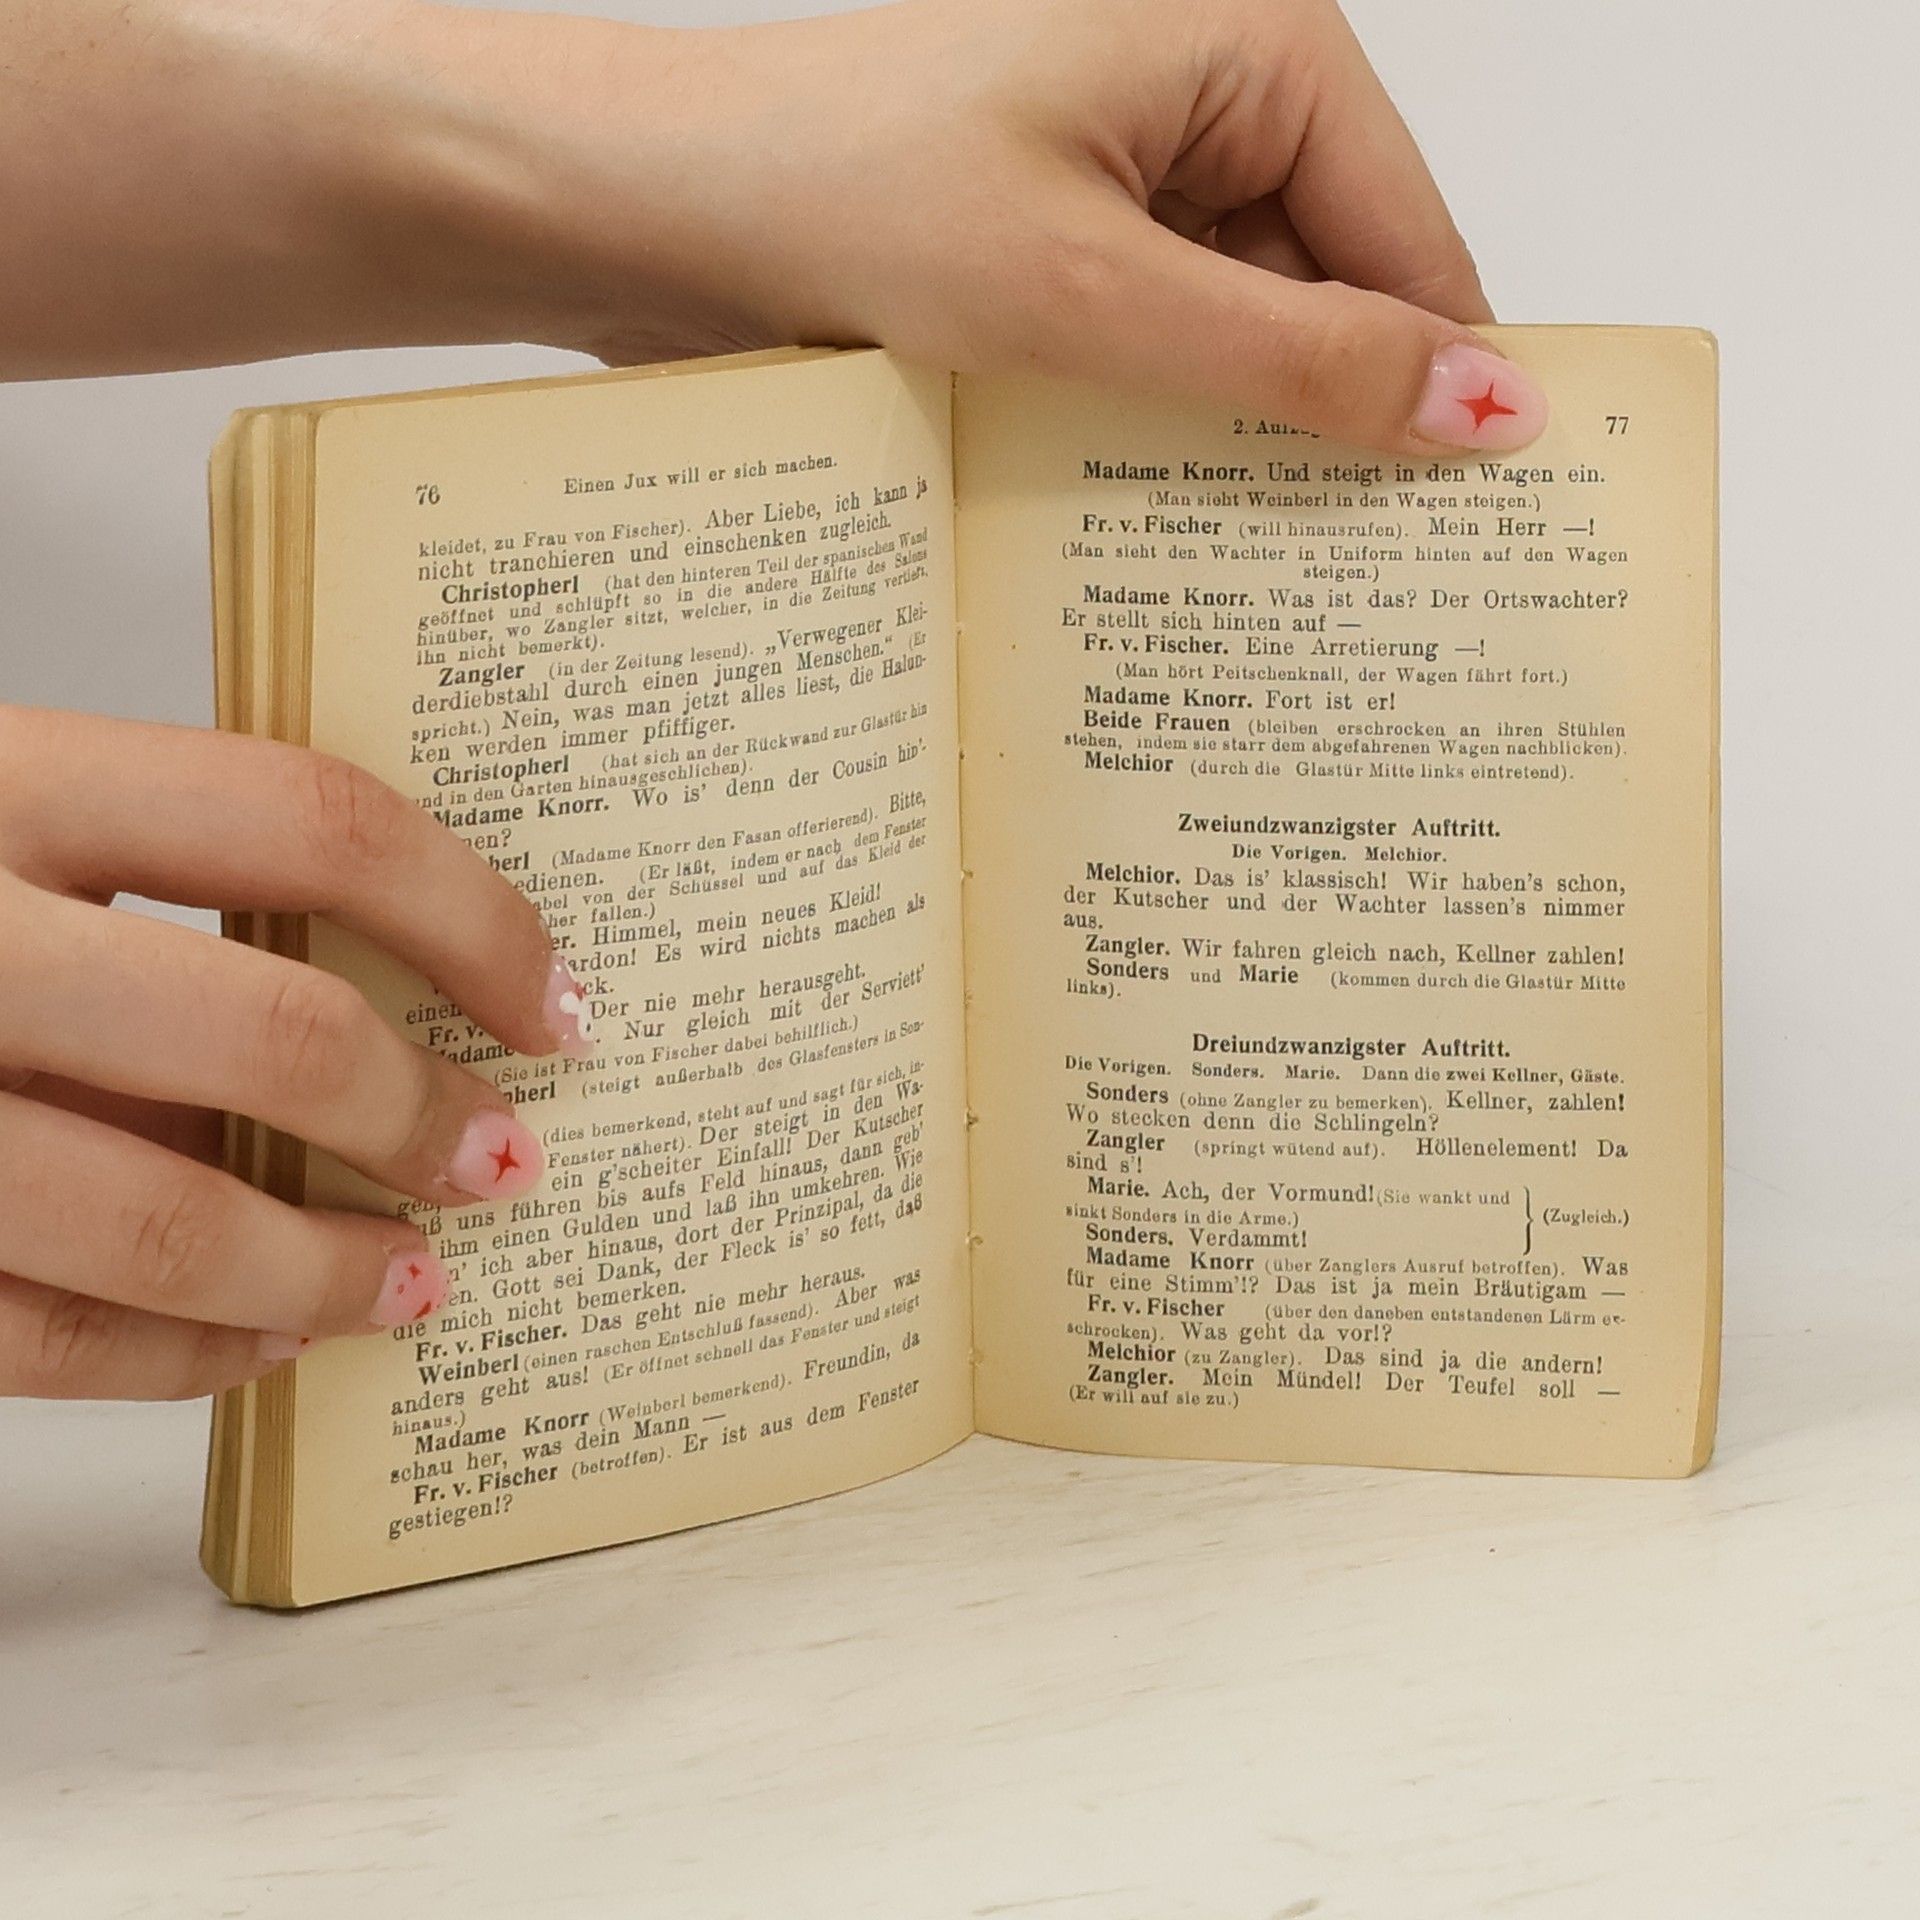 76
Einen Jux will er sich machen.
kleidet, zu Frau von Fischer). Aber Liebe, ich kann ja
nicht tranchieren und einschenken zugleich.
Christopherl (hat den hinteren Teil der spanischen Wand
geöffnet und schlüpft so in die andere Hälfte des Salons
hinüber, wo Zangler sitzt, welcher, in die Zeitung vertieft,
ihn nicht bemerkt).
Zangler (in der Zeitung lesend). „Verwegener Klei-
derdiebstahl durch einen jungen Menschen.“ (Er
spricht.) Nein, was man jetzt alles liest, die Halun-
ken werden immer pfiffiger.
Christopherl (hat sich an der Rückwand zur Glastür hin
und in den Garten hinausgeschlichen).
Madame Knorr. Wo is' denn der Cousin hin'-
(Madame Knorr den Fasan offerierend). Bitte,
(Er läßt, indem er nach dem Fenster
von der Schüssel und auf das Kleid der
fallen.)
Himmel, mein neues Kleid!
Es wird nichts machen als
einen
Der nie mehr herausgeht.
Fr. v. Nur gleich mit der Serviett'
(Sie ist Frau von Fischer dabei behilflich.)
(steigt außerhalb des Glasfensters in Son-
(dies bemerkend, steht auf und sagt für sich, in-
Fenster nähert). Der steigt in den Wa-
ein g'scheiter Einfall! Der Kutscher
uns führen bis aufs Feld hinaus, dann geb'
ihm einen Gulden und laß ihn umkehren. Wie
ich aber hinaus, dort der Prinzipal, da die
Gott sei Dank, der Fleck is' so fett, daß
die mich nicht bemerken.
Fr. v. Fischer. Das geht nie mehr heraus.
Weinberl (einen raschen Entschluß fassend). Aber was
anders geht aus! (Er öffnet schnell das Fenster und steigt
hinaus.)
Madame Knorr (Weinberl bemerkend). Freundin, da
schau her, was dein Mann —
Fr. v. Fischer (betroffen). Er ist aus dem Fenster
gestiegen!?
2. 77
Madame Knorr. Und steigt in den Wagen ein.
(Man sieht Weinberl in den Wagen steigen.)
Fr. v. Fischer (will hinausrufen). Mein Herr —!
(Man sieht den Wachter in Uniform hinten auf den Wagen
steigen.)
Madame Knorr. Was ist das? Der Ortswachter?
Er stellt sich hinten auf —
Fr. v. Fischer. Eine Arretierung —!
(Man hört Peitschenknall, der Wagen fährt fort.)
Madame Knorr. Fort ist er!
Beide Frauen (bleiben erschrocken an ihren Stühlen
stehen, indem sie starr dem abgefahrenen Wagen nachblicken).
Melchior (durch die Glastür Mitte links eintretend).
Zweiundzwanzigster Auftritt.
Die Vorigen. Melchior.
Melchior. Das is' klassisch! Wir haben's schon,
der Kutscher und der Wachter lassen's nimmer
aus.
Zangler. Wir fahren gleich nach, Kellner zahlen!
Sonders und Marie (kommen durch die Glastür Mitte
links).
Dreiundzwanzigster Auftritt.
Die Vorigen. Sonders. Marie. Dann die zwei Kellner, Gäste.
Sonders (ohne Zangler zu bemerken). Kellner, zahlen!
Wo stecken denn die Schlingeln?
Zangler (springt wütend auf). Höllenelement! Da
sind s'!
Marie. Ach, der Vormund! (Sie wankt und
sinkt Sonders in die Arme.) (Zugleich.)
Sonders. Verdammt!
Madame Knorr (über Zanglers Ausruf betroffen). Was
für eine Stimm'!? Das ist ja mein Bräutigam —
Fr. v. Fischer (über den daneben entstandenen Lärm er-
schrocken). Was geht da vor!?
Melchior (zu Zangler). Das sind ja die andern!
Zangler. Mein Mündel! Der Teufel soll —
(Er will auf sie zu.)